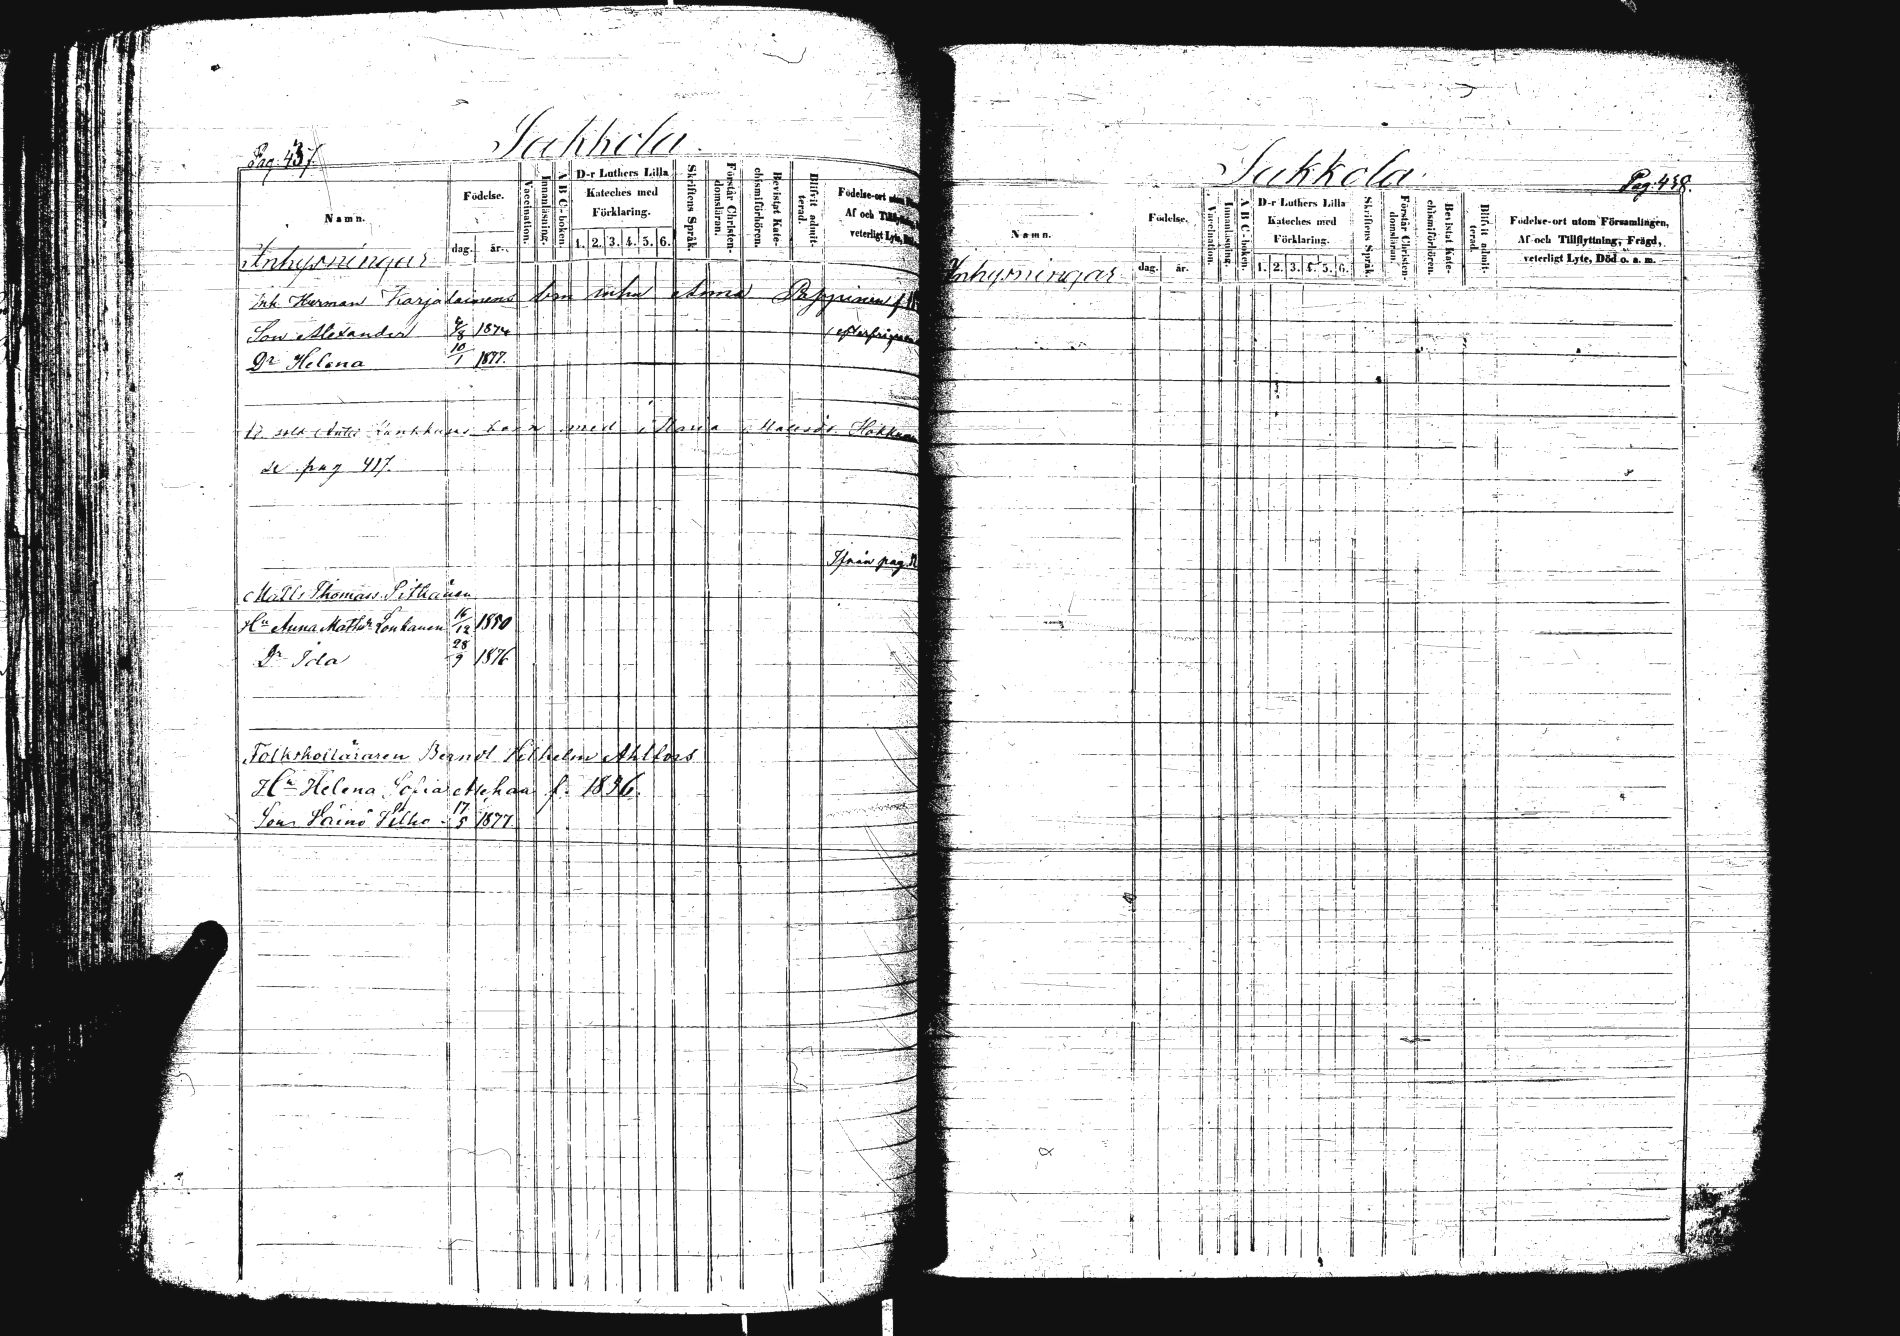 Sakkola.
Pag. 437.
Namn.
Födelse.
dag.
år.
Vaccination.
Innanläsning.
A B C-boken.
D-r Luthers Lilla
Kateches med
Förklaring.
1. 2. 3. 4. 5. 6.
Skriftens Språk.
Förstår Christen-
domsläran.
Bevistat Kate-
chismiförhören.
Blifvit admit-
terad.
Födelse-ort utom
Af och
veterligt Lyte,
Inhysningar
Herman Karjalainens Anna Pappinen
Son Alexander 4/3 1874
Dr Helena 10/1 1877.
med Maria
se pag 417.
Ifrån pag.
Matts Thomass. Pitkänen
Hu Anna Matsdr Lonkanen 16/12 1850
Dr Ida 28/9 1876
Folkskolläraren Berndt Vilhelm Ahlfors
Hu Helena Sofia f. 1836.
Son Väinö Vilho 17/5 1877.
Sakkola.
Pag. 438.
Namn.
Födelse.
dag.
år.
Vaccination.
Innanläsning.
A B C-boken.
D-r Luthers Lilla
Kateches med
Förklaring.
1. 2. 3. 4. 5. 6.
Skriftens Språk.
Förstår Christen-
domsläran.
Bevistat Kate-
chismiförhören.
Blifvit admit-
terad.
Födelse-ort utom Församlingen,
Af och Tillflyttning, Frägd,
veterligt Lyte, Död o. s. m.
Inhysningar